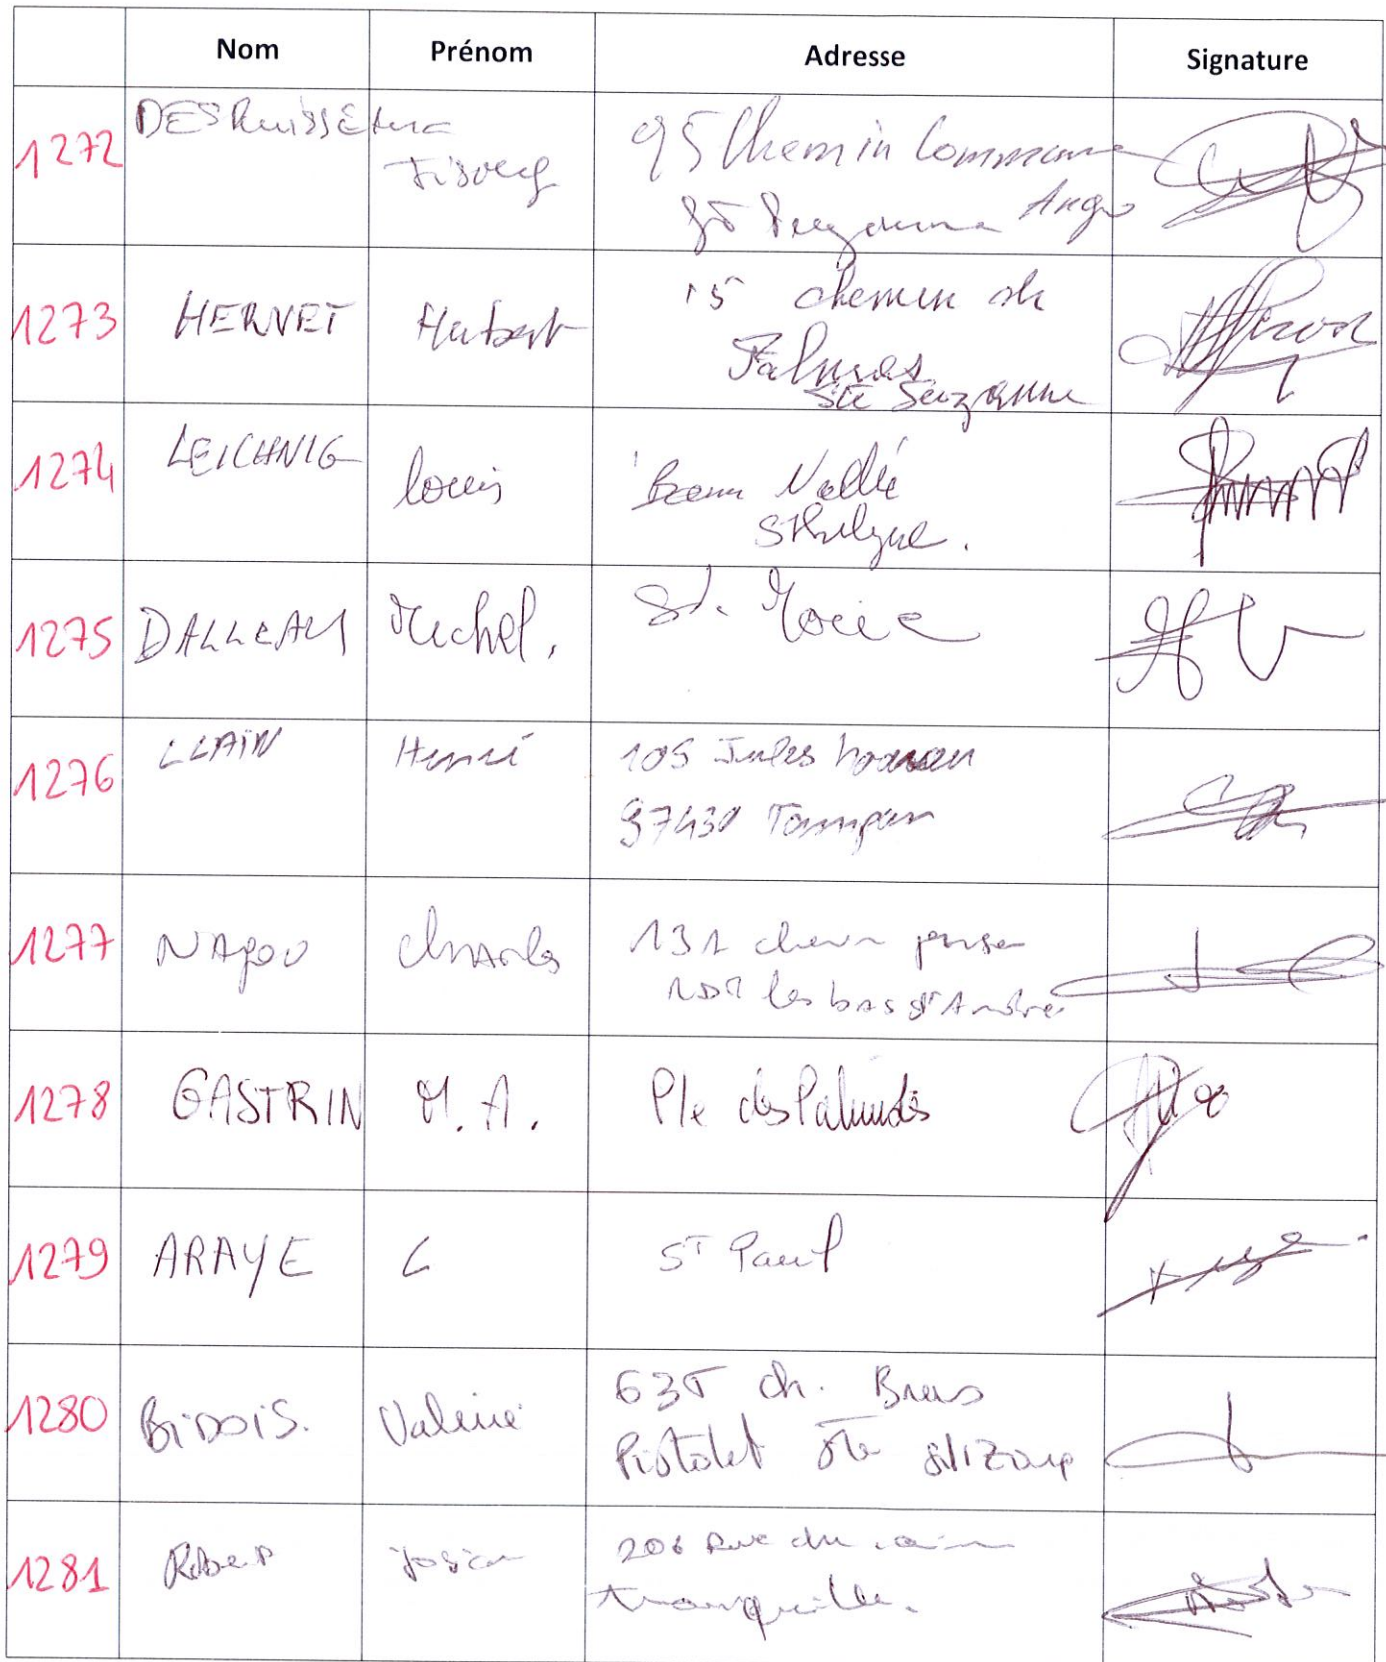 Nom Prénom Adresse Signature
1272 DESRuiSSEAux 95 Chemin Commune
Ango
1273 HERVET Hubert 15 chemin de
Palmas
Ste Suzanne
1274 LEICHNIG louis Beau Vallée
1275 DALLEAU Michel. St. Marie
1276 LLAIN Henri 105 Jules
97430 Tampon
1277 NAGOU Charles 131 chemin
les bas St Andre
1278 GASTRIN M. A. Ple des Palmistes
1279 ARAYE C ST Paul
1280 BiDOiS. Valérie 635 ch. Bras
Pistolet Ste
1281 Robert 206 Rue du
tranquille.